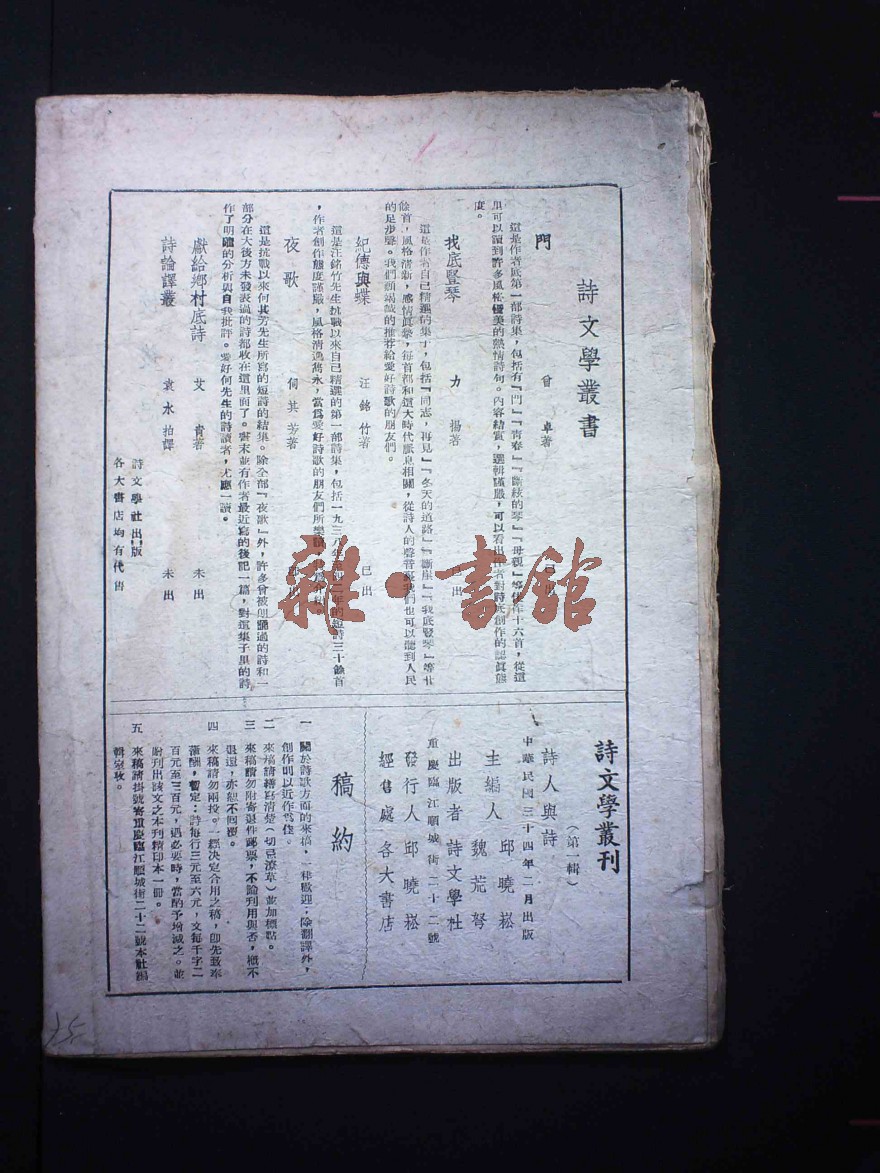 詩文學叢書
門　曾　卓著　已出
這是作者底第一部詩集，包括有『門』『靑春』『斷絃的琴』『母親』等佳作十六首，從這
里可以讀到許多風格優美的熱情詩句。內容結實，選輯謹嚴，可以看出作者對詩底創作的認眞態
度。
我底竪琴　力　揚著　已出
這是作者自己精選的集子，包括『同志，再見』『冬天的道路』『斷崖』『我底竪琴』等廿
餘首，風格淸新，感情眞摯，每首都和這大時代脈息相關，從詩人的聲音裏我們也可以聽到人民
的足步聲。我們願竭誠的推荐給愛好詩歌的朋友們。
紀德與蝶　汪銘竹著　已出
這是汪銘竹先生抗戰以來自己精選的第一部詩集，包括一九三八年至四二年的短詩三十餘首
，作者創作態度謹嚴，風格淸逸雋永，當爲愛好詩歌的朋友們所樂
夜歌　何其芳著　已出
這是抗戰以來何其芳先生所寫的短詩的結集。除全部『夜歌』外，許多曾被朗誦過的詩和一
部分在大後方未發表過的詩都收在這里面了。書末並有作者最近寫的後記一篇，對這集子里的詩
作了明確的分析與自我批評。愛好何先生的詩讀者，尤應一讀。
獻給鄉村底詩　艾　靑著　未出
詩論譯叢　袁水拍譯　未出
詩文學社出版
各大書店均有代售
詩文學叢刊
（第一輯）
詩人與詩
中華民國三十四年二月出版
主編人　邱曉崧
魏荒弩
出版者　詩文學社
重慶臨江順城街二十二號
發行人　邱曉崧
經售處　各大書店
稿約
一　關於詩歌方面的來稿，一律歡迎；除翻譯外，
創作則以近作爲佳。
二　來稿請繕寫淸楚（切忌潦草）並加標點。
三　來稿請勿附寄退件郵票，不論刊用與否，槪不
退還，亦恕不回覆。
四　來稿請勿兩投。一經決定合用之稿，卽先致奉
薄酬，暫定：詩每行三元至六元，文每千字二
百元至三百元，遇必要時，當酌予增減之。並
附刊出該文之本刊精印本一冊。
五　來稿請掛號寄重慶臨江順城街二十二號本社編
輯室收。
雜·書館